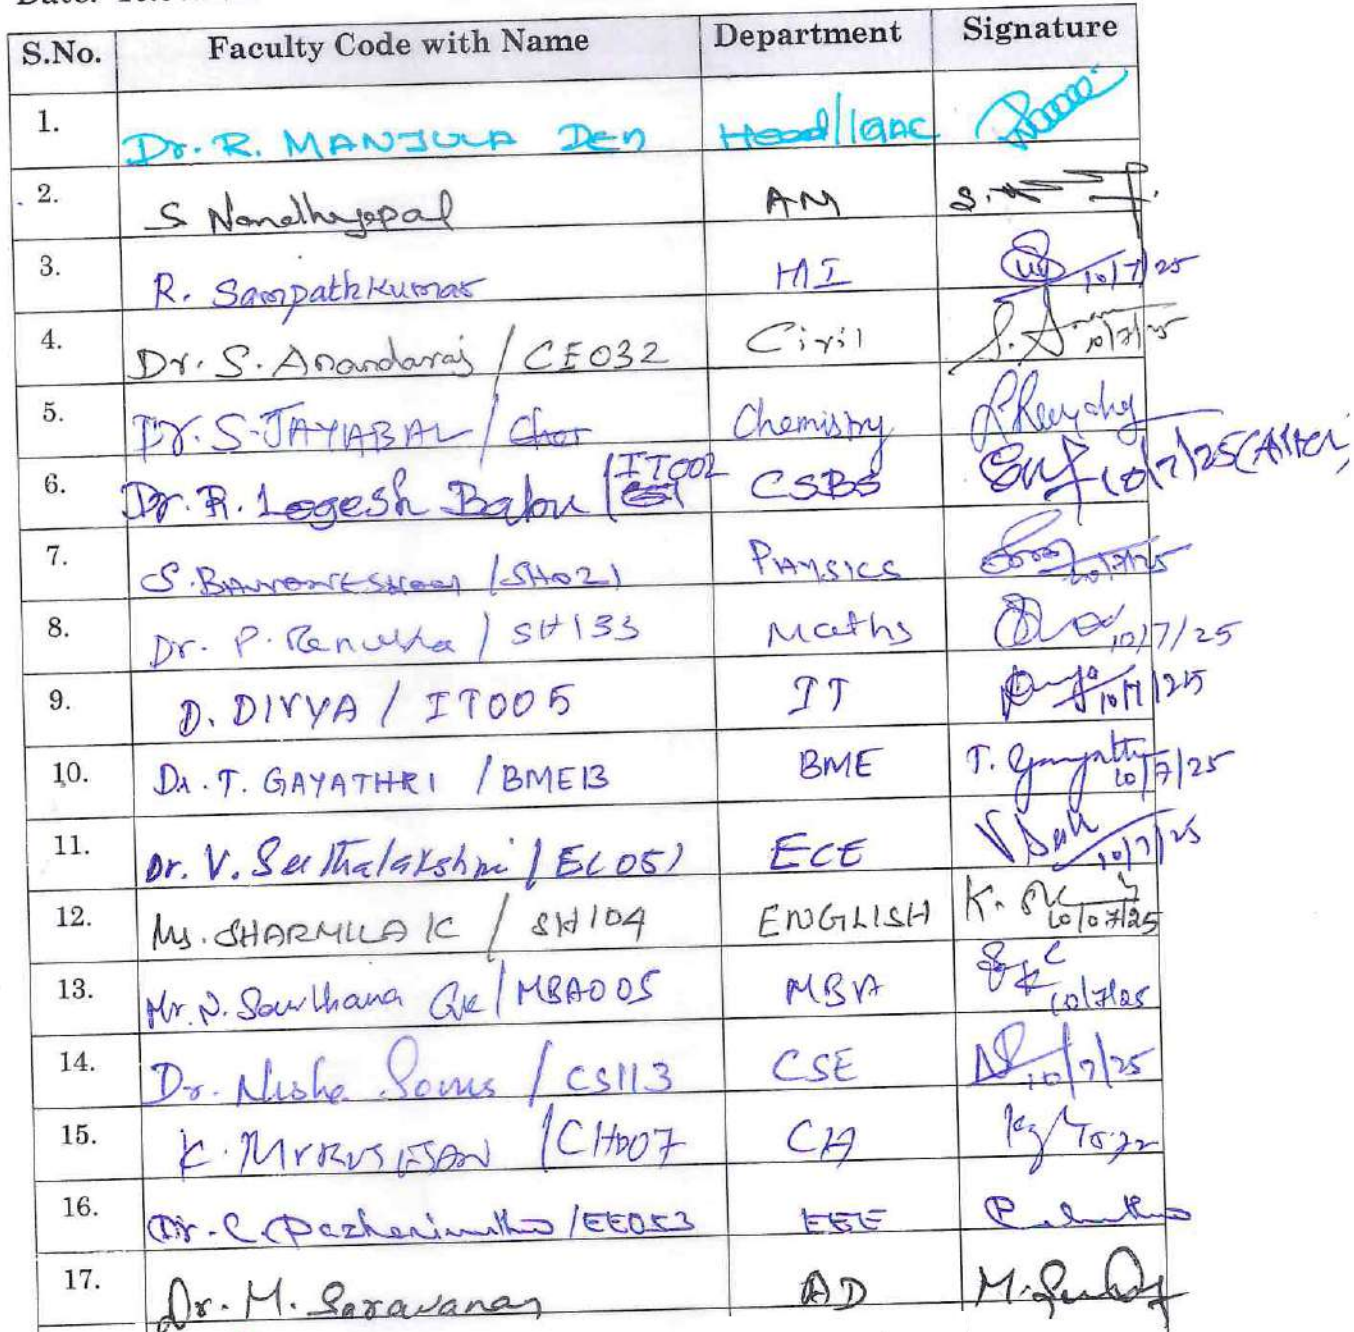 S.No. Faculty Code with Name Department Signature
1. Dr. R. MANJULA DEVI Head/IQAC
2. S Nandhagopal AM
3. R. Sampathkumar MI 10/7/25
4. Dr. S. Anandaraj / CE032 Civil 10/7/25
5. Dr. S. JAYABAL / Chemistry
6. Dr. R. Logesh Babu / IT002 CSBS 10/7/25
7. S. / SH021 PHYSICS 10/7/25
8. Dr. P. Renukha / SH133 Maths 10/7/25
9. D. DIVYA / IT005 IT 10/7/25
10. Dr. T. GAYATHRI / BME13 BME T. Gayathri 10/7/25
11. Dr. V. Seethalakshmi / EC051 ECE 10/7/25
12. Ms. SHARMILA K / SH104 ENGLISH K. 10/07/25
13. Mr. N. / MBA005 MBA 10/7/25
14. Dr. Nisha Soms / CS113 CSE 10/7/25
15. K. MURUGESAN / CH007 CH
16. Dr. C. Pazhanimuthu / EE053 EEE
17. Dr. M. Saravanan AD